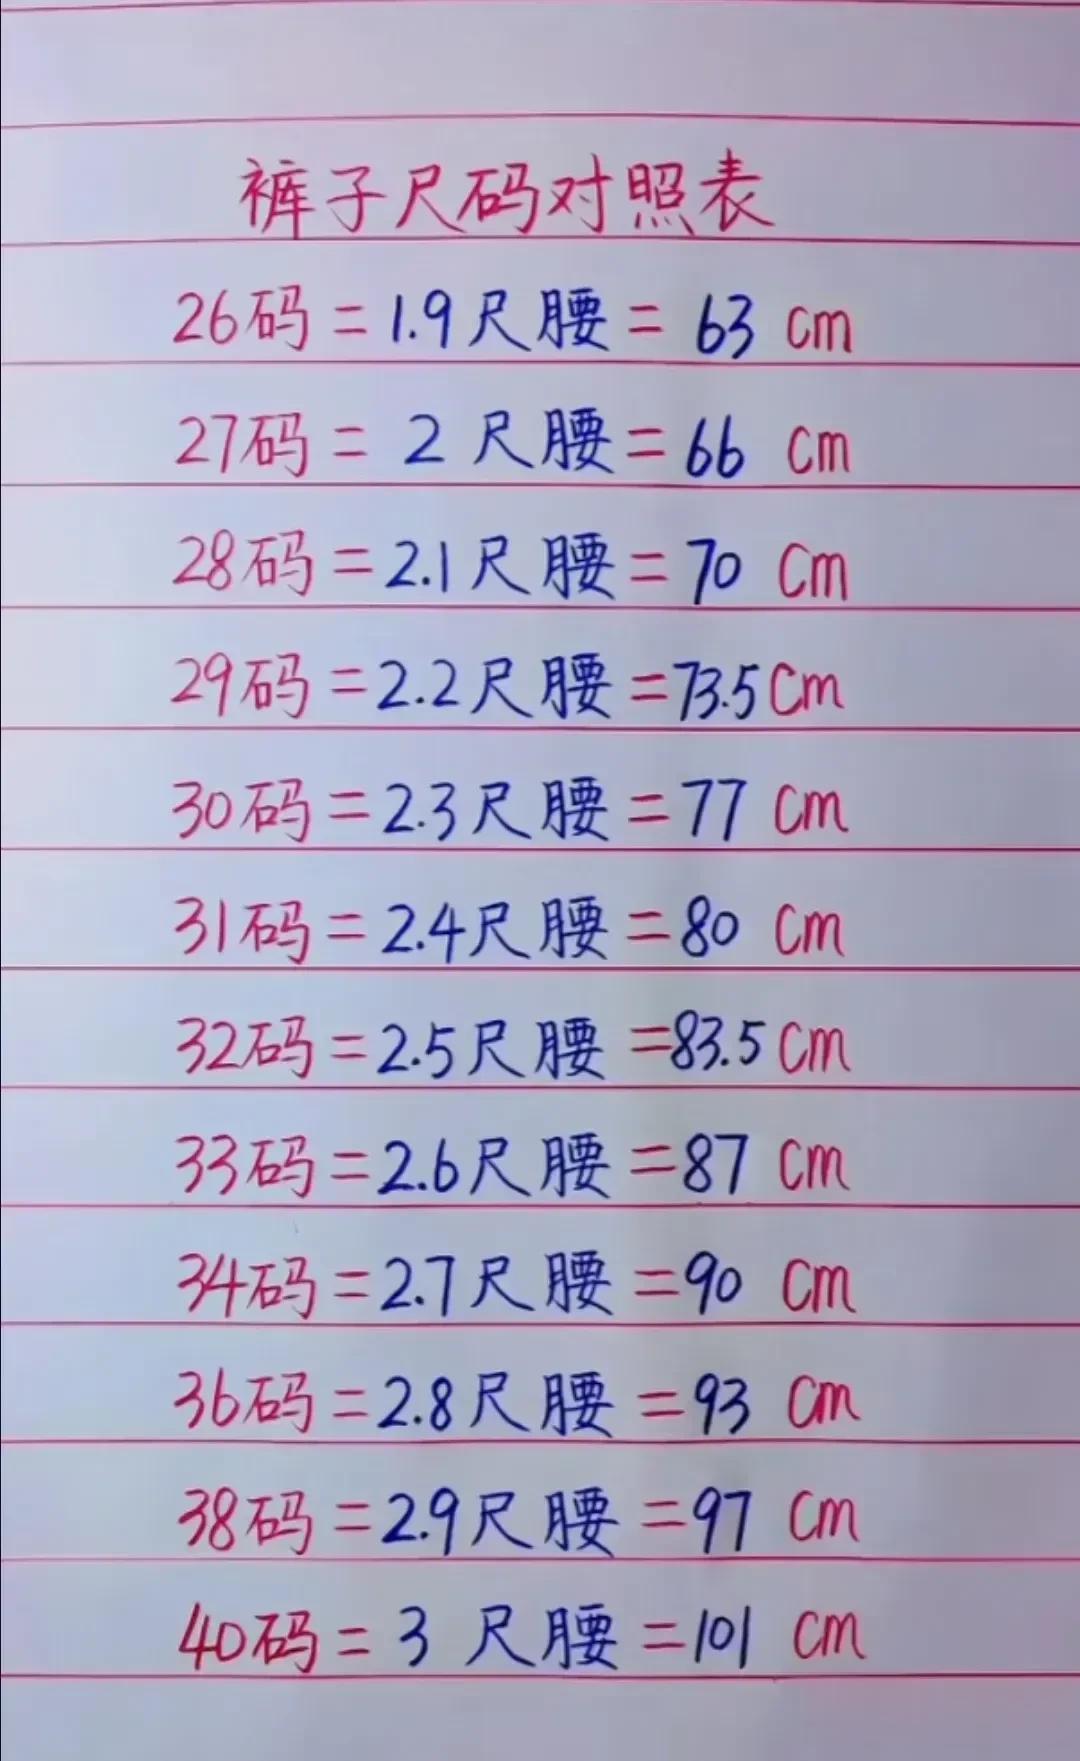 裤子尺码对照表
26码 = 1.9尺腰 = 63 cm
27码 = 2 尺腰 = 66 cm
28码 = 2.1尺腰 = 70 cm
29码 = 2.2尺腰 = 73.5cm
30码 = 2.3尺腰 = 77 cm
31码 = 2.4尺腰 = 80 cm
32码 = 2.5尺腰 = 83.5cm
33码 = 2.6尺腰 = 87 cm
34码 = 2.7尺腰 = 90 cm
36码 = 2.8尺腰 = 93 cm
38码 = 2.9尺腰 = 97 cm
40码 = 3 尺腰 = 101 cm